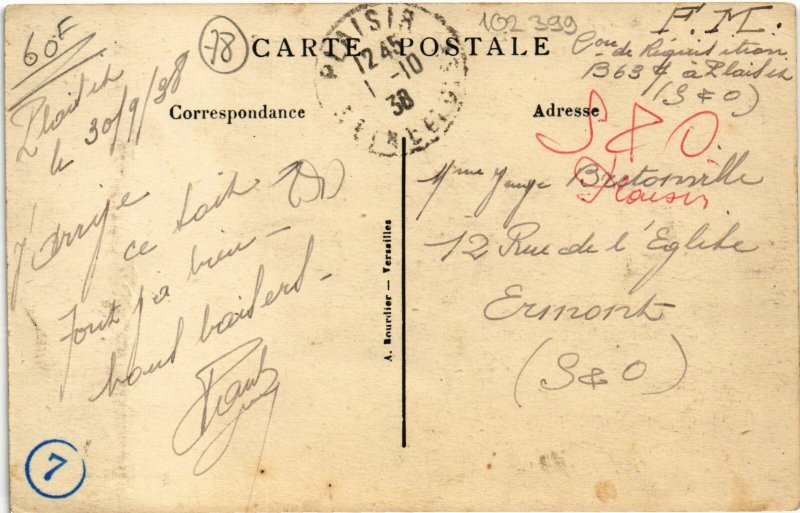 60F
78
102 399
F.M.
CARTE POSTALE
PLAISIR
12 45
1 -10
38
SEINE ET OISE
Con de Réquisition
B63 à Plaisir
(S & O)
Correspondance
Adresse
Plaisir
le 30/9/38
J'arrive
ce soir
Tout va bien -
bons baisers -
S & O
Plaisir
Mme Bretonville
12 Rue de l'Eglise
Ermont
(S & O)
A. Bourdier — Versailles
7